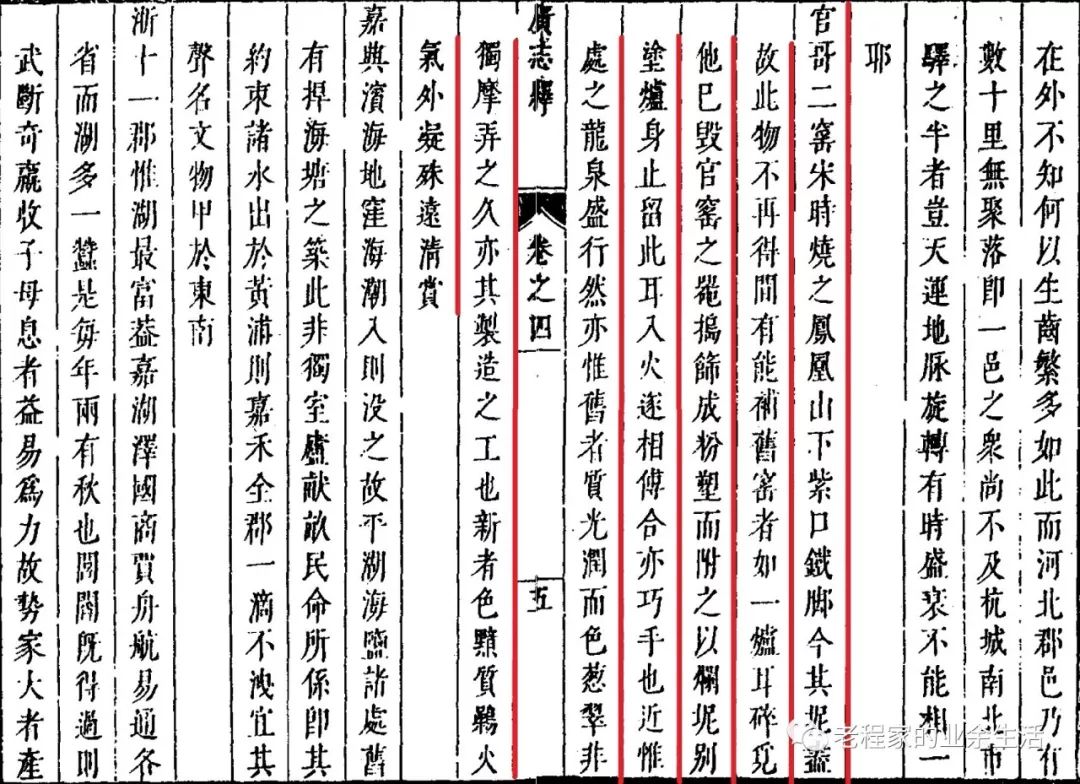 在外不知何以生齒繁多如此而河北郡邑乃有
數十里無聚落即一邑之衆尚不及杭城南北市
驛之半者豈天運地脉旋轉有時盛衰不能相一
耶
官哥二窑宋時燒之鳳凰山下紫口鐵脚今其泥盡
故此物不再得間有能補舊窑者如一爐耳碎覓
他已毀官窑之器搗篩成粉塑而附之以爛泥别
塗爐身止留此耳入火逐相傅合亦巧手也近惟
處之龍泉盛行然亦惟舊者質光潤而色葱翠非
廣志繹 卷之四 五
獨摩弄之久亦其製造之工也新者色黯質鬆火
氣外凝殊遠清賞
嘉興濱海地窪海潮入則没之故平湖海鹽諸處舊
有捍海塘之築此非獨室廬献畝民命所係即其
約束諸水出於黃浦則嘉禾全郡一滴不洩宜其
聲名文物甲於東南
浙十一郡惟湖最富葢嘉湖澤國商賈舟航易通各
省而湖多一蠶是每年兩有秋也閭閻既得過則
武斷奇贏收子母息者益易爲力故勢家大者產
老程家的业余生活